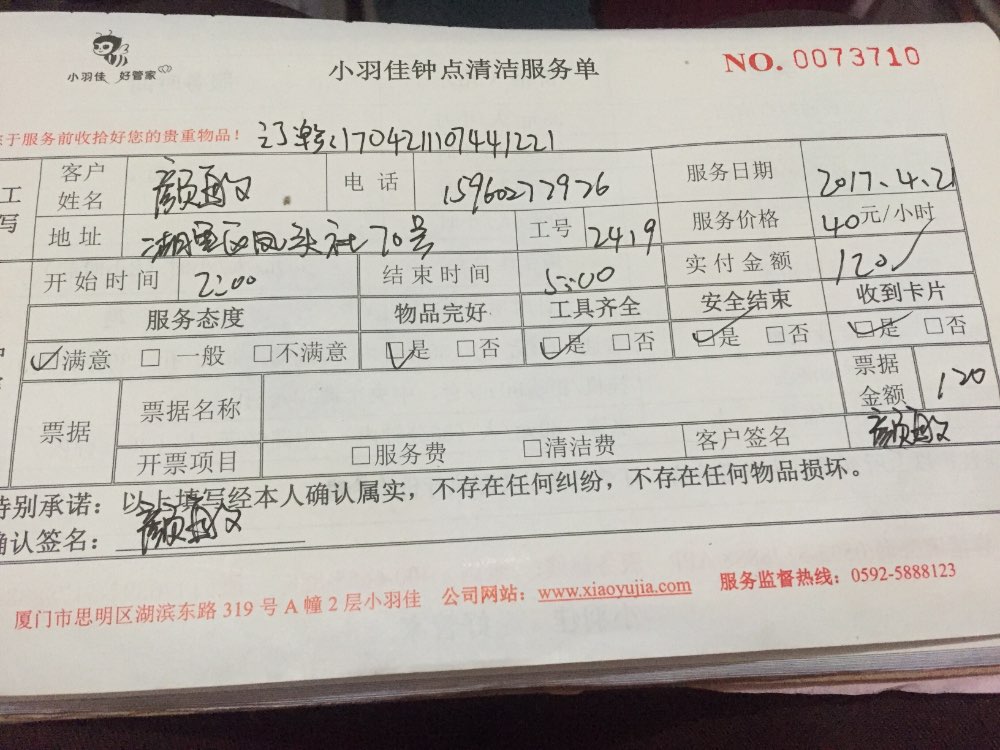 小羽佳 好管家
小羽佳钟点清洁服务单
NO. 0073710
于服务前收拾好您的贵重物品！ 170421107441221
工 客户姓名 颜 文 电 话 15960272976 服务日期 2017.4.21
写 地 址 湖里区凤头社70号 工号 2419 服务价格 40元/小时
开始时间 2:00 结束时间 5:00 实付金额 120
服务态度 物品完好 工具齐全 安全结束 收到卡片
☑满意 □ 一般 □不满意 ☑是 □否 ☑是 □否 ☑是 □否 ☑是 □否
票据 票据名称 票据金额 120
开票项目 □服务费 □清洁费 客户签名 颜 文
特别承诺：以上填写经本人确认属实，不存在任何纠纷，不存在任何物品损坏。
确认签名： 颜 文
厦门市思明区湖滨东路 319 号 A 幢 2 层小羽佳 公司网站：www.xiaoyujia.com 服务监督热线：0592-5888123